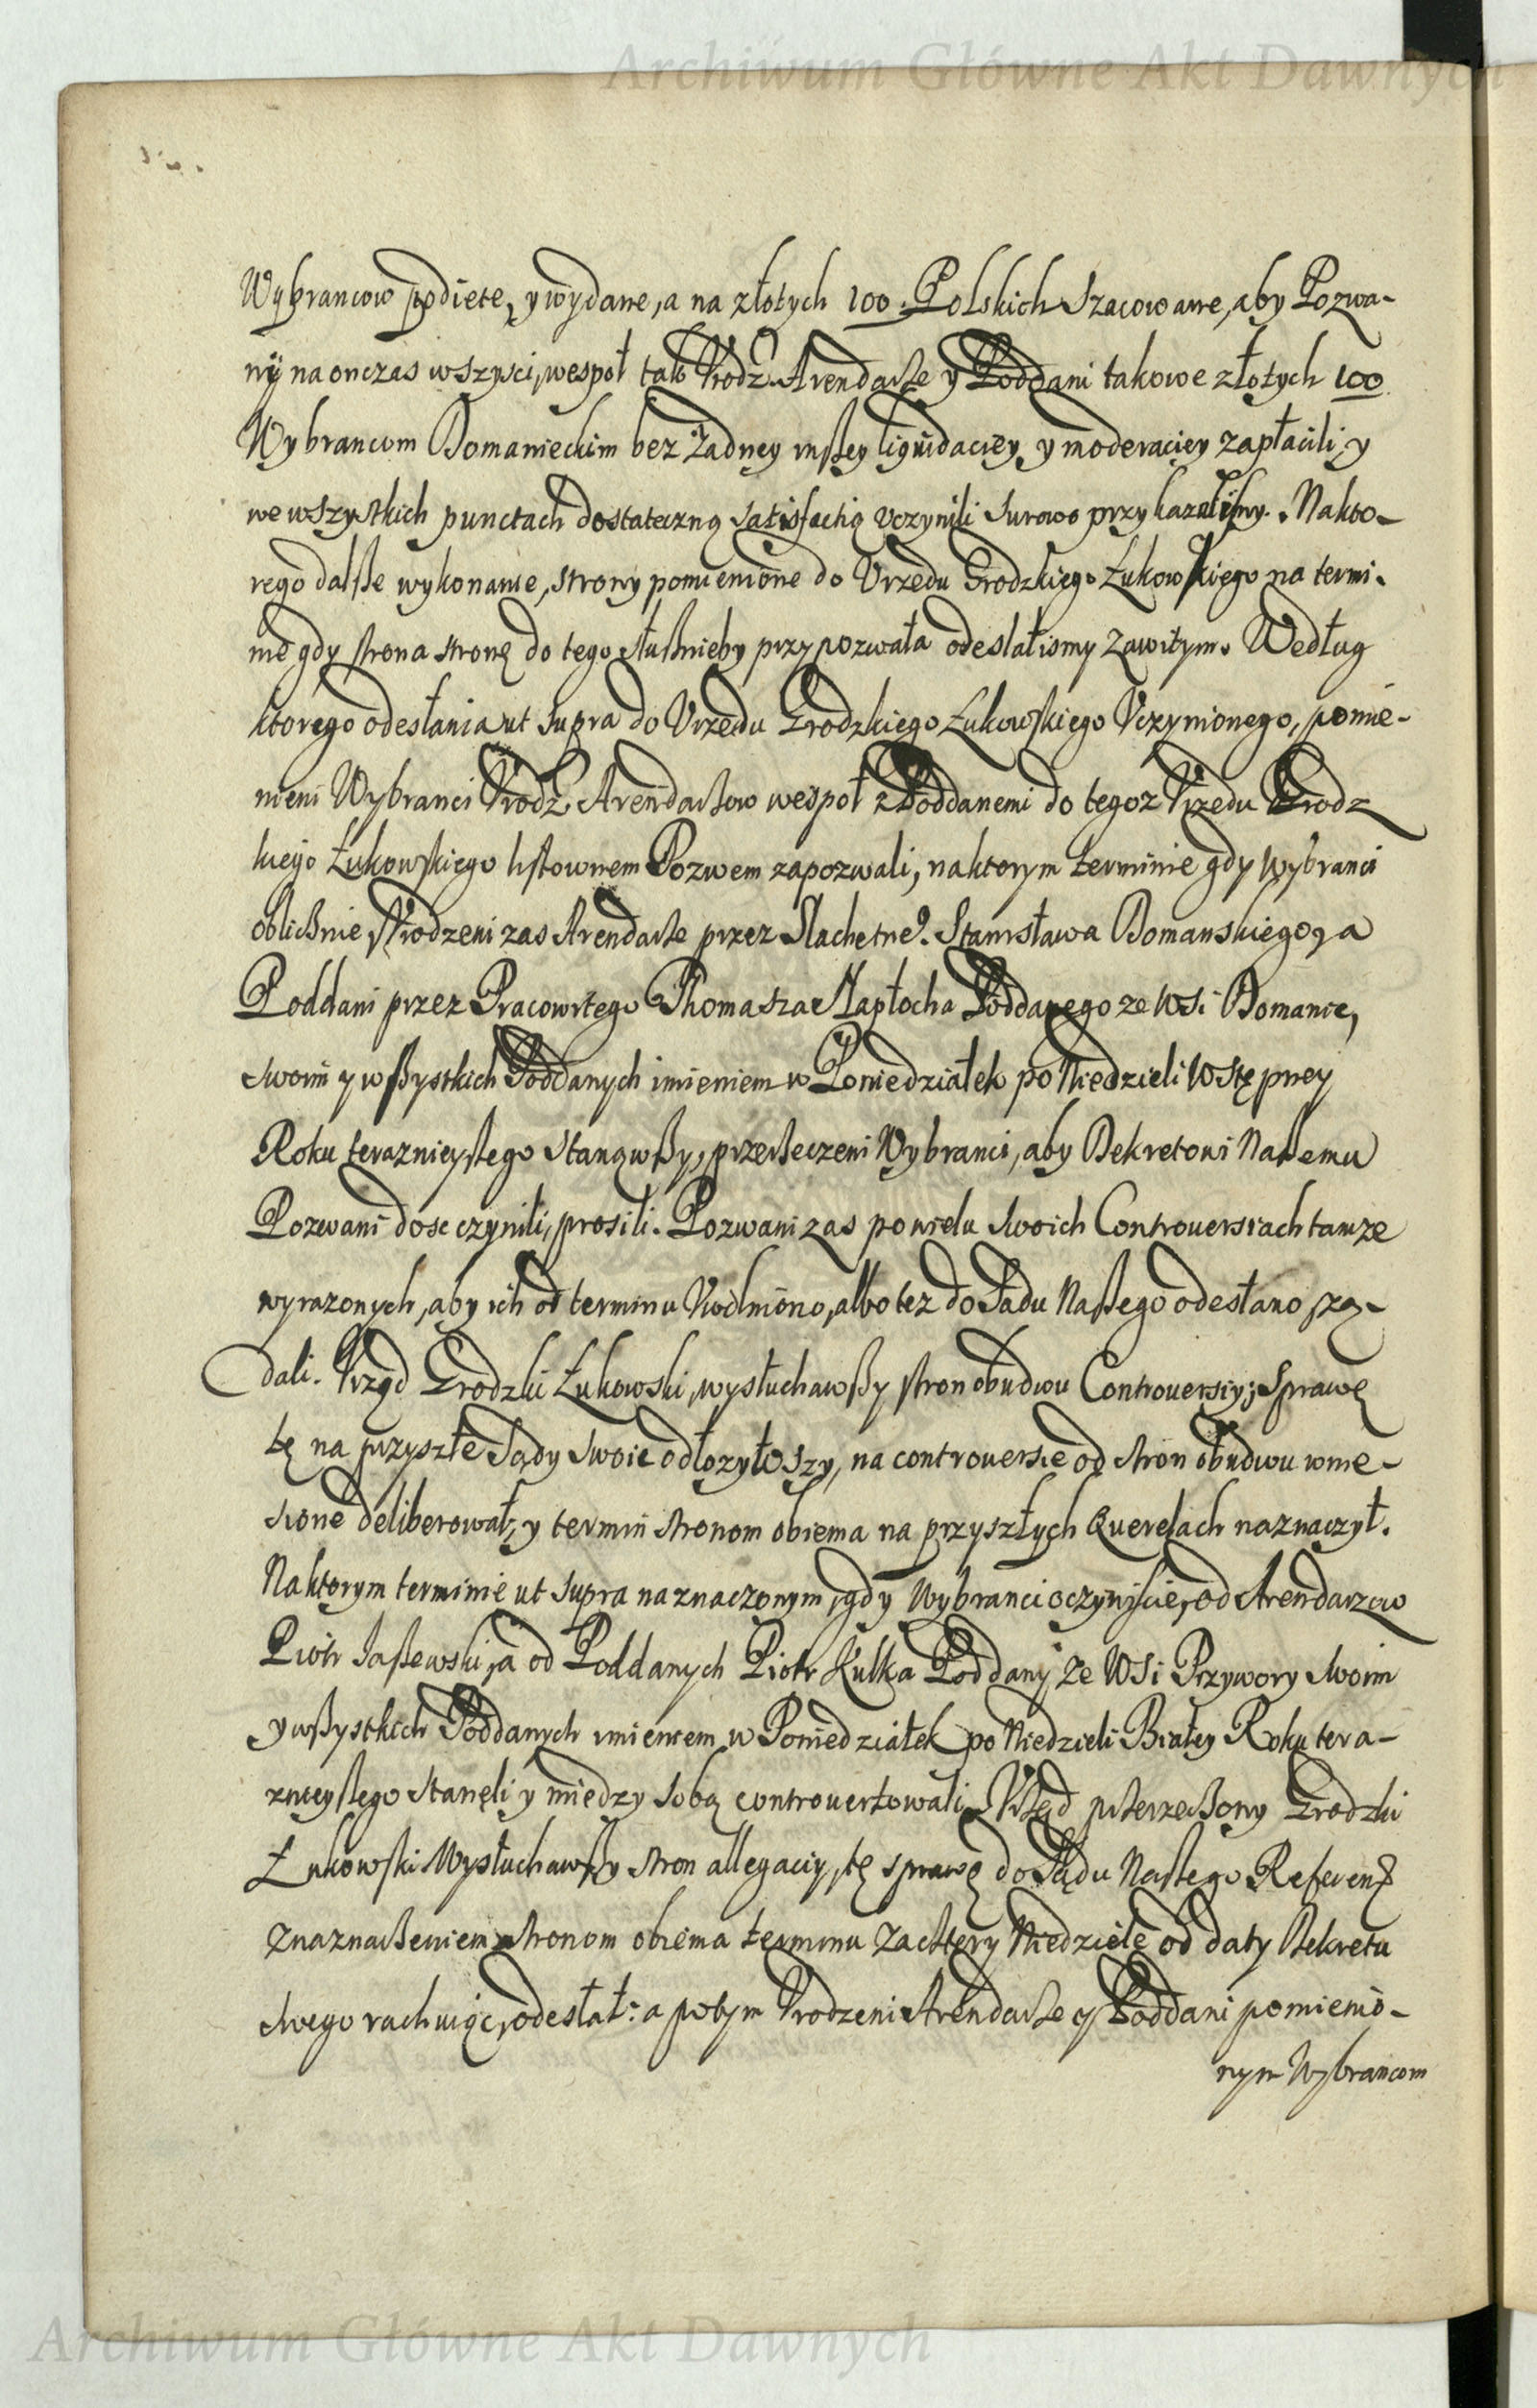 Archiwum Główne Akt Dawnych
Wybrancow podięte, y wydane, a na złotych 100 Polskich szacowane, aby Pozwa-
ny na onczas wszysci, wespoł tak Vrodz. Arendarße y Poddani takowe złotych 100
Wybrancom Domanieckim bez żadney inßey liquidaciey y moderaciey zapłacili, y
we wszystkich punctach dostateczną satisfactią vczynili surowo przykazalismy. Nakto-
rego dalße wykonanie, strony pomienione do Vrzędu Grodzkiego Łukowskiego na termi-
nie gdy strona stronę do tego słußnieby przypozwała odesłalismy zawitym. Według
ktorego odesłania ut supra do Vrzedu Grodzkiego Łukowskiego Vczynionego, pomie-
nieni Wybranci Vrodz. Arendarßow wespoł z Poddanemi do tegoz Vrzedu Grodz
kiego Łukowskiego listownem Pozwem zapozwali, naktorym terminie gdy Wybranci
oblicßnie, Vrodzeni zas Arendarße przez Slachetne°. Stanisława Domanskiego, a
Poddani przez Pracowitego Thomasza Napłocha Poddanego ze Wsi Domanic,
swoim y wßystkich Poddanych imieniem w Poniedziałek po Niedzieli Wstępney
Roku teraznieyßego stanąwßy, przerßeczeni Wybranci, aby Dekretowi Naßemu
Pozwani dosc czynili, prosili. Pozwani zas po wielu swoich Controuersiach tamze
wyrazonych, aby ich od terminu Vwolniono, albo tez do Sadu Naßego odesłano, żą-
dali. Vrząd Grodzki Łukowski, wysłuchawßy stron obudwu Controuersiy; Sprawę
tę na przyszłe Sądy swoie odłozyłwszy, na controuersie od stron obudwu wnie-
sione deliberował, y termin stronom obiema na przyszłych Querelach naznaczył.
Naktorym terminie ut supra naznaczonym, gdy Wybranci oczywiscie, od Arendarzow
Piotr Jaßewski, a od Poddanych Piotr Kulka Poddany ze Wsi Przywory swoim
y wßystkich Poddanych imieniem w Poniedziałek po Niedzieli Białey Roku tera-
znieyßego stanęli y między sobą controuertowali, Vrßąd przerzeczony Grodzki
Łukowski Wysłuchawßy stron allegaciy, tę sprawę do Sądu Naßego Referendz
z naznaczeniem stronom obiema terminu za cßtery Niedziele od daty Dekretu
swego rachuiąc, odesłał: a potym Vrodzeni Arendarße y Poddani pomienio-
nym Wybrancom
Archiwum Główne Akt Dawnych